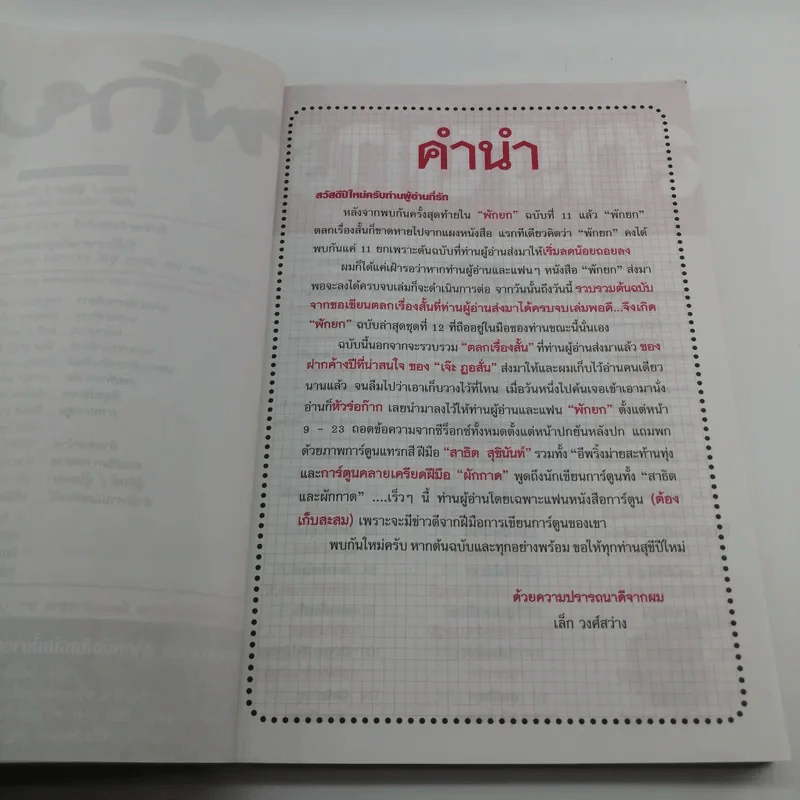 คำนำ
สวัสดีปีใหม่ครับท่านผู้อ่านที่รัก
หลังจากพบกันครั้งสุดท้ายใน “พักยก” ฉบับที่ 11 แล้ว “พักยก”
ตลกเรื่องสั้นก็ขาดหายไปจากแผงหนังสือ แรกทีเดียวคิดว่า “พักยก” คงได้
พบกันแค่ 11 ยกเพราะต้นฉบับที่ท่านผู้อ่านส่งมาให้เริ่มลดน้อยถอยลง
ผมก็ได้แค่เฝ้ารอว่าหากท่านผู้อ่านและแฟนๆ หนังสือ “พักยก” ส่งมา
พอจะลงได้ครบจบเล่มก็จะดำเนินการต่อ จากวันนั้นถึงวันนี้ รวบรวมต้นฉบับ
จากขอเขียนตลกเรื่องสั้นที่ท่านผู้อ่านส่งมาได้ครบจบเล่มพอดี...จึงเกิด
“พักยก” ฉบับล่าสุดชุดที่ 12 ที่ถืออยู่ในมือของท่านขณะนี้นั่นเอง
ฉบับนี้นอกจากจะรวบรวม “ตลกเรื่องสั้น” ที่ท่านผู้อ่านส่งมาแล้ว ของ
ฝากค้างปีที่น่าสนใจ ของ “เจ๊ะ ฎอสั่น” ส่งมาให้และผมเก็บไว้อ่านคนเดียว
นานแล้วค้า จนลืมไปว่าเอาเก็บวางไว้ที่ไหน เมื่อวันหนึ่งไปค้นเจอเข้าเอามานั่ง
อ่านก็หัวร่อก๊าก เลยนำมาลงไว้ให้ท่านผู้อ่านและแฟน “พักยก” ตั้งแต่หน้า
9 – 23 ถอดข้อความจากซีร็อกซ์ทั้งหมดตั้งแต่หน้าปกยันหลังปก แถมพก
ด้วยภาพการ์ตูนแทรกสี ฝีมือ “สาธิต สุขินันท์” รวมทั้ง “อีพริ้งม่ายสะท้านทุ่ง
และการ์ตูนคลายเครียดฝีมือ “ผักกาด” พูดถึงนักเขียนการ์ตูนทั้ง “สาธิต
และผักกาด” ....เร็วๆ นี้ ท่านผู้อ่านโดยเฉพาะแฟนหนังสือการ์ตูน (ต้อง
เก็บสะสม) เพราะจะมีข่าวดีจากฝีมือการเขียนการ์ตูนของเขา
พบกันใหม่ครับ หากต้นฉบับและทุกอย่างพร้อม ขอให้ทุกท่านสุขีปีใหม่
ด้วยความปรารถนาดีจากผม
เล็ก วงศ์สว่าง